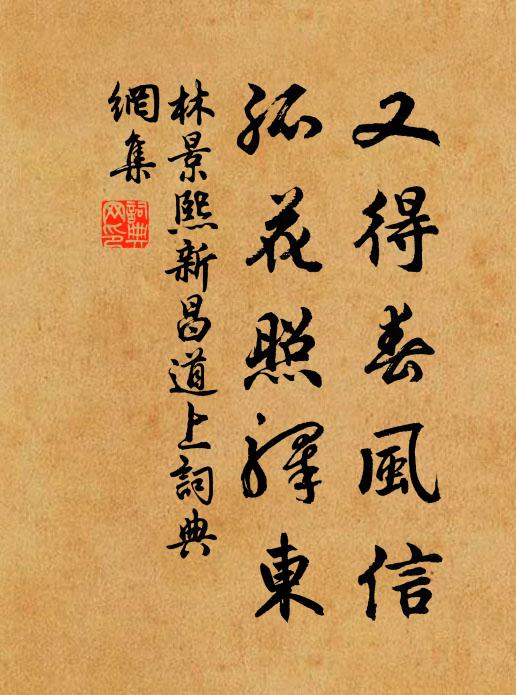 又得春風信
孤花照驛東
林景熙新昌道上詞典
網集
詞典網印